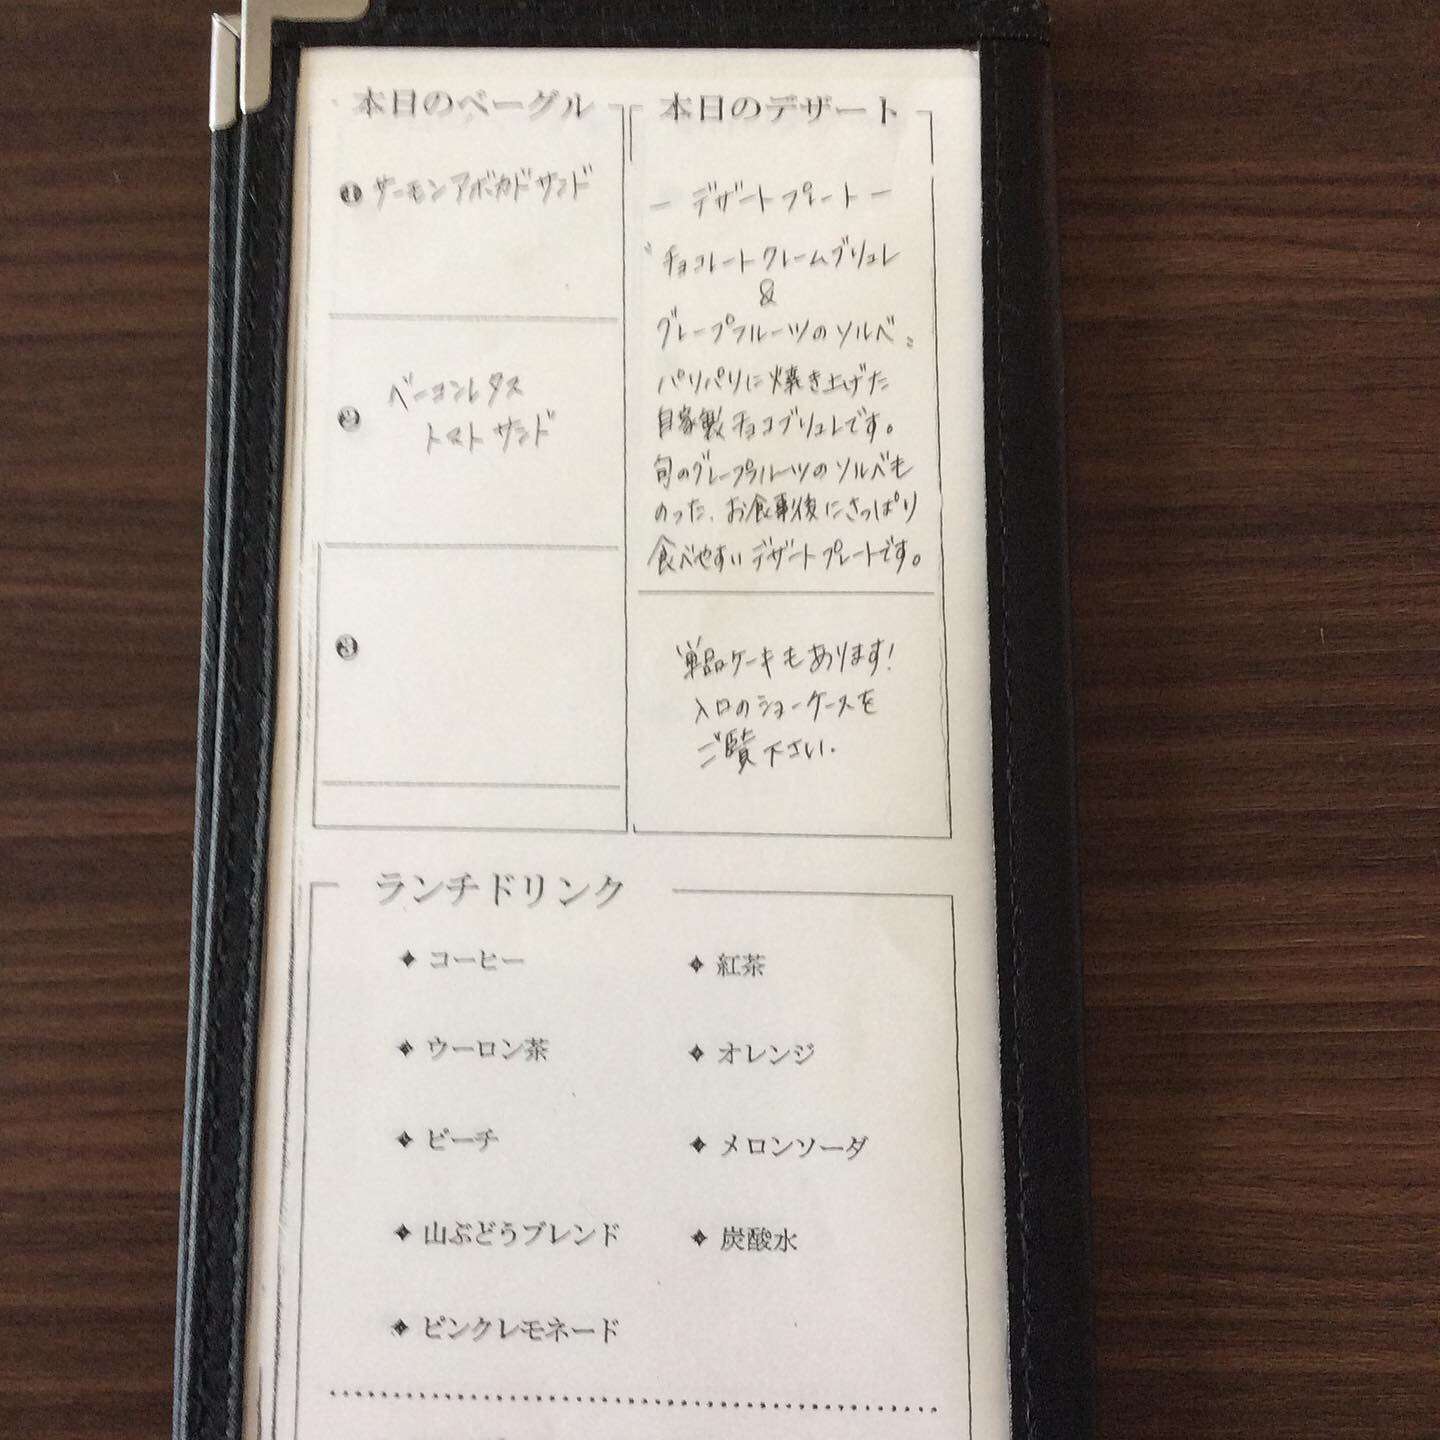 本日のベーグル
❶ サーモンアボカドサンド
❷ ベーコンレタス
トマトサンド
❸
本日のデザート
ー デザートプレート ー
〝チョコレートクレームブリュレ
&
グレープフルーツのソルベ〟
パリパリに焼き上げた
自家製チョコブリュレです。
旬のグレープフルーツのソルベも
のった、お食事後にさっぱり
食べやすいデザートプレートです。
単品ケーキもあります!
入口のショーケースを
ご覧下さい.
ランチドリンク
コーヒー
紅茶
ウーロン茶
オレンジ
ピーチ
メロンソーダ
山ぶどうブレンド
炭酸水
ピンクレモネード